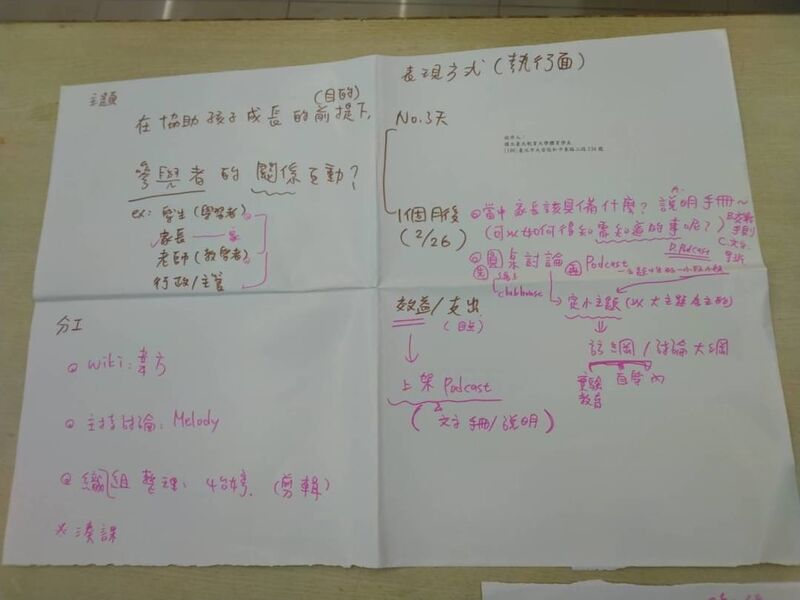 主題
(目的)
在協助孩子成長的前提下,
參與者的關係互動?
ex: 學生(學習者)
家長
老師(教學者)
行政/主管
表現方式(執行面)
No.3天
1個月後
(2/26)
@當中家長該具備什麼? 說明手冊~
(可以如何得知需知道的事呢?)
D.Podcast
@圓桌討論
Podcast
clubhouse
定小主題(以大主題為主軸)
訪綱/討論大綱
實驗教育
效益/支出
(目的)
上架Podcast
(文字手冊/說明)
分工
@ wiki:
@ 主持討論: Melody
@ 組織整理: (剪輯)
※湊課